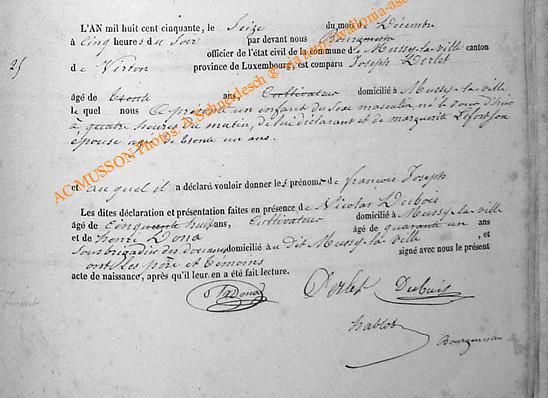 L'AN mil huit cent cinquante, le Seize du mois de Décembre
à Cinq heures du Soir par devant nous Bourgmestre
officier de l'état civil de la commune de Mussy-la-ville canton
25 de Virton province de Luxembourg, est comparu Joseph Perlet
âgé de trente ans, Cultivateur domicilié à Mussy-la-ville
le quel nous a présenté un enfant du sexe masculin, né le
à quatre heures du matin, de lui déclarant et de marguerite Lefort son
épouse agée de trente un ans.
et auquel il a déclaré vouloir donner les prénoms de françois Joseph
Les dites déclaration et présentation faites en présence de Nicolas Dubois
âgé de Cinquante huit ans, Cultivateur domicilié à Mussy-la ville
et de henri Dona âgé de quarante un ans
Sousbrigadier des douanes domicilié à u dit Mussy-la-ville , et
ont les père et témoins signé avec nous le présent
acte de naissance, après qu'il leur en a été fait lecture.
Dona Perlet Dubois
Bourgmestre
AC MUSSON Photos A. Schneidesch ® via http://wallonia-as